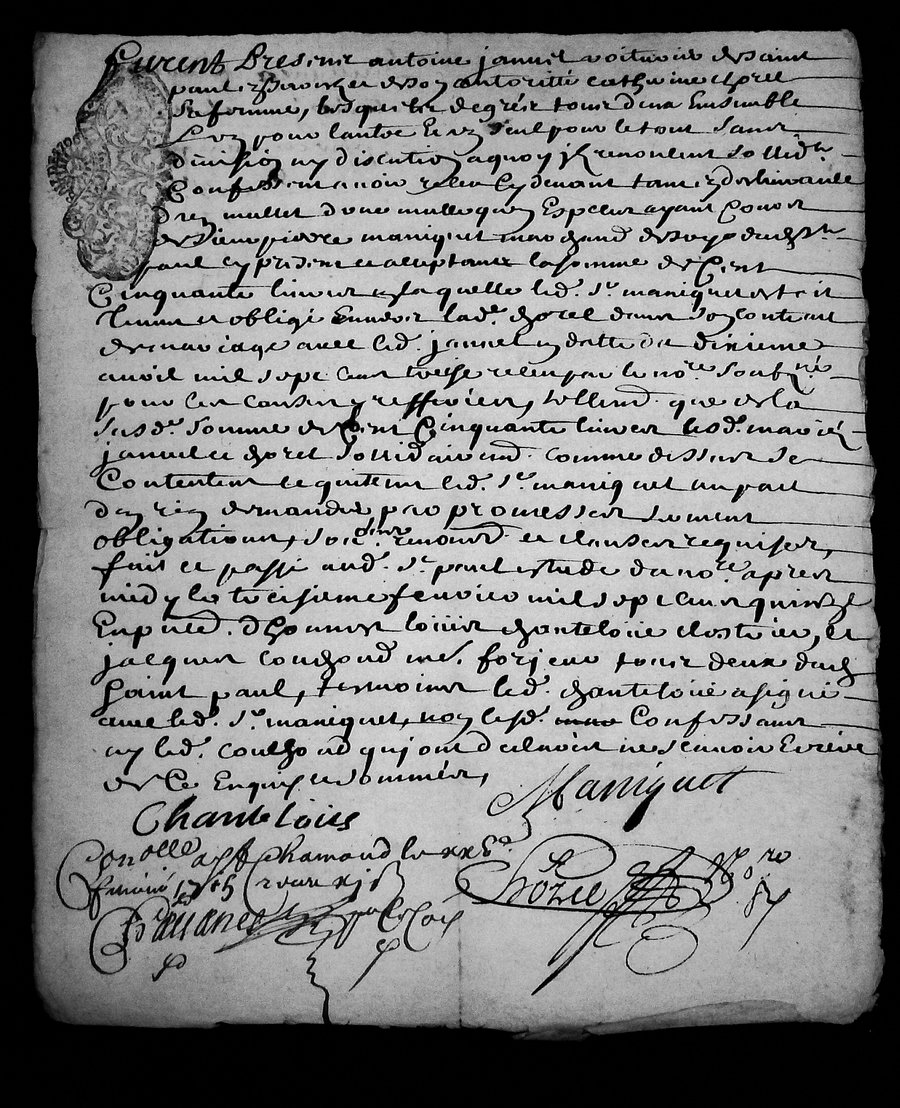 furent Presents antoine jamet voiturier de saint
paul et de son autoritté catherine chorel
sa femme, lesquels de grés tous deux Ensemble
L'un pour l'autre et un seul pour le tout sans
division ny discution a quoy ils renoncent sollid.t
Confessent avoir receu cy devant tant
mullet d'une mulle qu'en Especes ayant Cours
de Sieur pierre maniquet marchand de soye dud. St
paul cy present et acceptant la somme de Cent
Cinquante livres a laquelle led. Sr. maniquet estoit
tenu et obligé Envers lad. chorel dans son contrat
de mariage avec led. jamet en datte du dixieme
avril mil sept cent treise receu par le nore soubné
pour les causes y resserées, tellemt. que de la
susd. somme de Cent Cinquante livres lesd. mariés
jamet et chorel sollidairemt. comme dessus se
Contentent et quittent led. Sr. maniquet
rien demander par promesses serment
obligations, renonon. et clauses requises,
fait et passé aud. St paul estude du nore. apres
midy le troisieme fevrier mil sept cens quinze
En pnce. d'honnest louis chanteloie clostrier, et
jacques couchoud me. forjeur tous deux dud.
Saint paul, tesmoins led. chanteloie a signé
avec led. Sr. maniquet, non lesd. Confessants
ny led. couchoud qui ont declairé ne scavoir Escrire
de Ce Enquis et sommés,
Maniquet
Chanteloies
Conollé a St Chamand le xxe.
fevrier 1715 Receu
Chorel Nore Rl